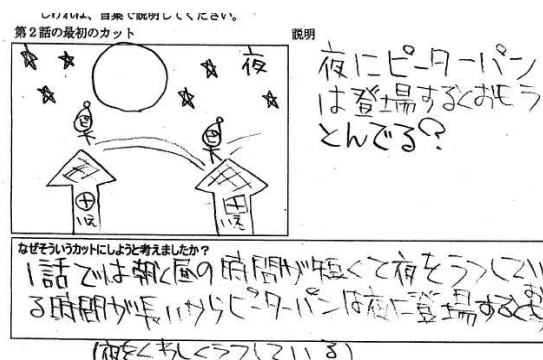 しければ、言葉で説明してください。
第2話の最初のカット
説明
夜
夜にピーターパン
は登場するとおもう
とんでる?
いえ
いえ
なぜそういうカットにしようと考えましたか?
1話では朝と昼の時間が短くて夜をうつしてい
る時間が長いからピーターパンは夜に登場するとおも
(夜をくわしくうつしている)